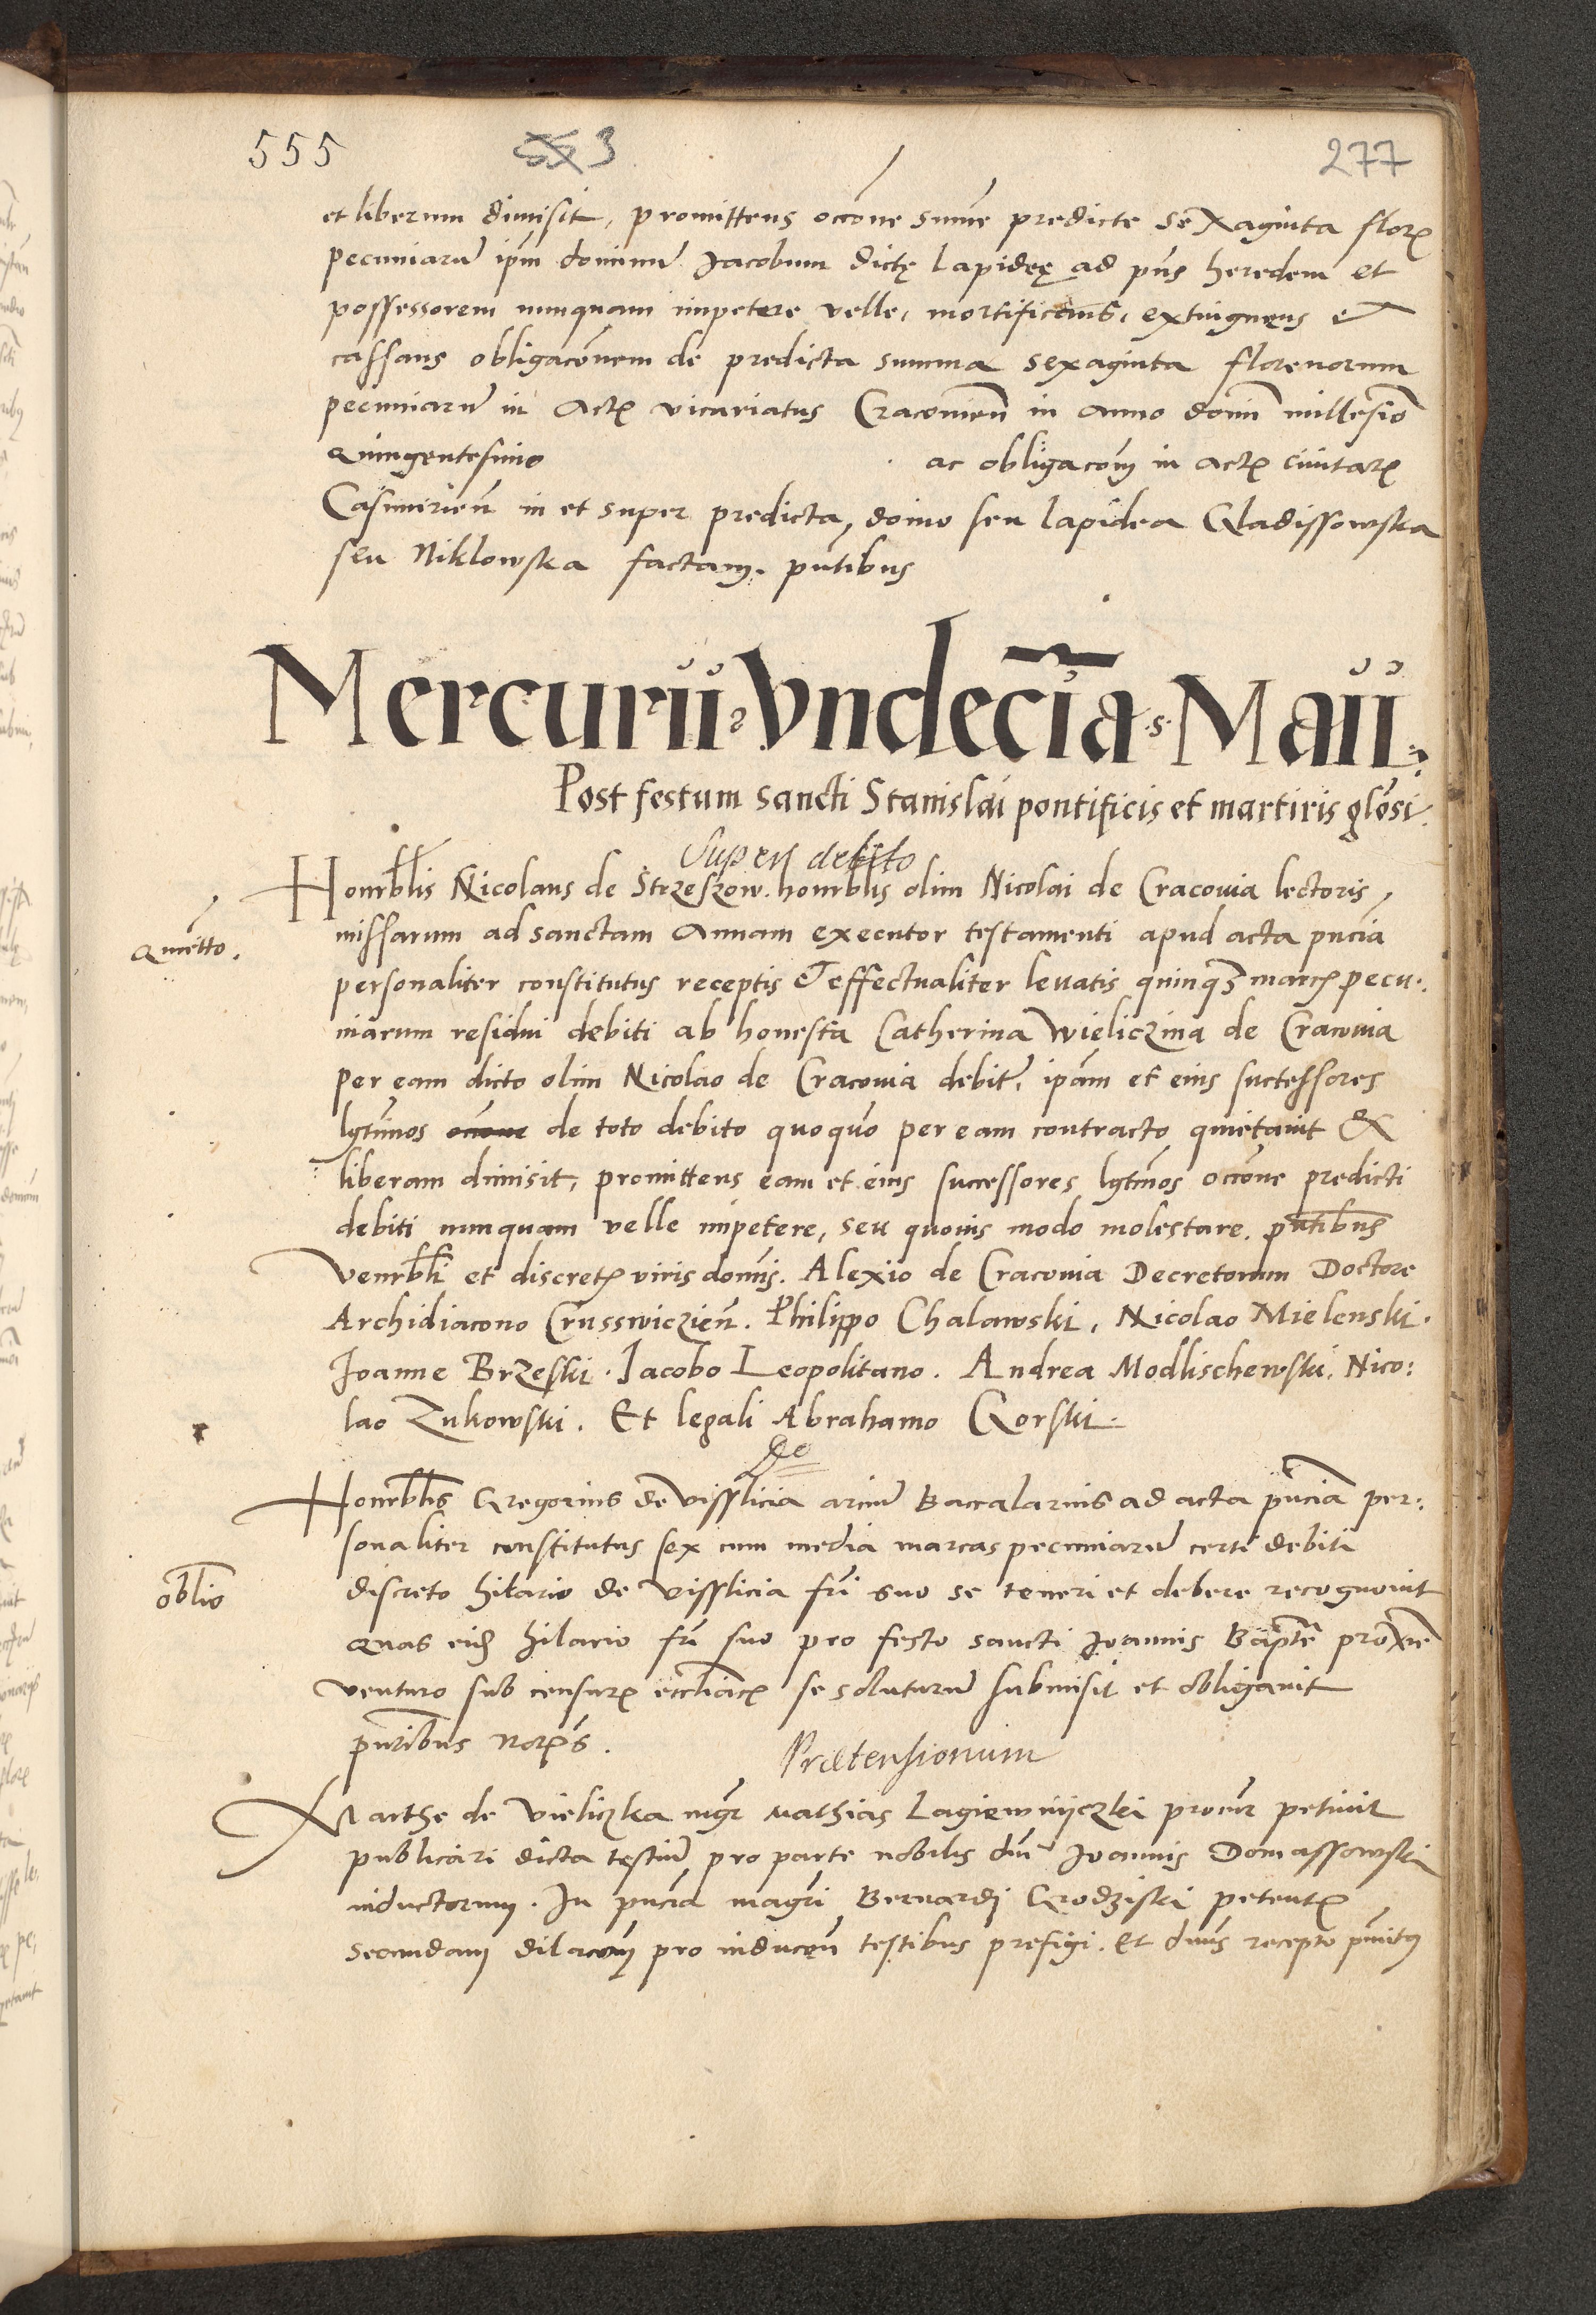 555 3 277
et liberum dimisit, promittens occõne summe predicte sexaginta floꝝ
pecuniarũ ip̃m dominũ Jacobum dictę lapideę ad p̃ns heredem et
possessorem nunquam impetere velle, mortificans, extinguens et
cassans obligacõnem de predicta summa sexaginta florenorum
pecuniarũ in Actꝭ vicariatus Cracouien̄ in anno domĩ millesĩo
quingentesimo ac obligacõm in actꝭ ciuitatꝭ
Casimirien̄ in et super predicta domo seu lapidea Gladissowska
seu Niklowska factam. pñtibus
Mercurii Vndecĩa Maii
Post festum sancti Stanislai pontificis et martiris glõsi.
Super debito
Honorb̃lis Nicolaus de Strzeszow. honorb̃lis olim Nicolai de Cracouia lectoris
missarum ad sanctam Annam executor testamenti apud acta pñcia
Quietto.
personaliter constitutus receptis et effectualiter leuatis quinqꝫ marcꝭ pecu-
niarum residui debiti ab honesta Catherina Wieliczina de Cracouia
per eam dicto olim Nicolao de Cracouia debitꝭ, ip̃am et eius successores
lg̃timos de toto debito quoquõ per eam contracto quietauit &
liberam dimisit, promittens eam et eius successores lg̃tmos occõne predicti
debiti nunquam velle impetere, seu quouis modo molestare. pñtibus
Venrb̃li et discretꝭ viris domĩs. Alexio de Cracouia Decretorum Doctore
Archidiacono Crusswiczien̄. Philippo Chalawski, Nicolao Mielenski.
Joanne Brzeski. Jacobo Leopolitano. Andrea Modlischewski. Nico:
lao Zukowski. Et legali Abrahamo Gorski.
De
Honorb̃lis Gregorius de Visslicia arciũ Baccalarius ad acta pñcia per:
sonaliter constitutus sex cum media marcas pecuniarũ certi debiti
oblio
discreto hilario de Visslicia fr̃i suo se teneri et debere recognouit
quas eid̃ hilario fr̃i suo pro festo sancti Joannis Bap̃te proxĩe
venturo sub censurꝭ eccl̃iacꝭ se soluturũ submisit et obligauit
pñtibus notꝭs.
Prætensionum
Marthe de Vieliczka mgr̃ Mathias Lagiewnijczki procur̃ petiuit
publicari dicta testiũ pro parte nobilis dñi Joannis Domassowski
inductorum. In pñcia magr̃i Bernardj Grodziski petentꝭ
secundam dilacõm pro inducen̄ testibus prefigi. Et dñus recepto